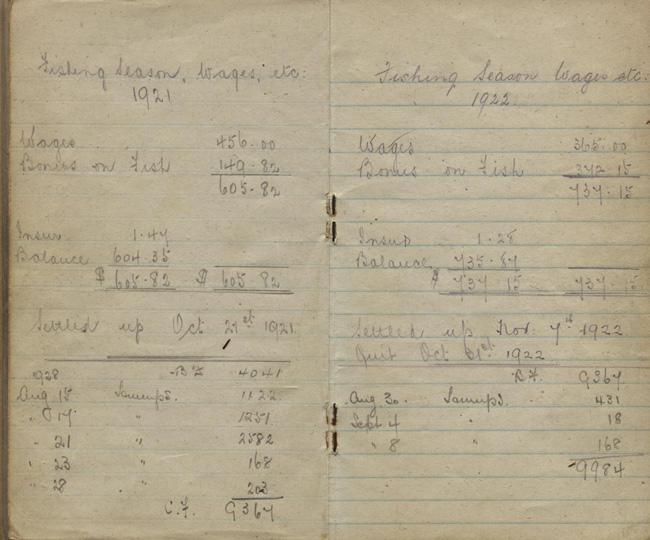 Fishing Season, Wages, etc:
1921
Wages 456.00
Bonus on Fish 149.82
605.82
Insur 1.47
Balance 604.35
$ 605.82 $ 605.82
Settled up Oct 21st 1921.
928 B.F. 4041
Aug 15 1122
" 17 " 1251
" 21 " 2582
" 23 " 168
" 28 " 203
C.F. 9367
Fishing Season Wages etc.
1922
Wages 365.00
Bonus on Fish 372.15
737.15
Insur 1.28
Balance 735.87
$ 737.15 737.15
Settled up Nov. 7th 1922
Quit Oct 31st 1922
B.F. 9367
Aug 30 431
Sept 4 " 18
" 8 " 168
9984